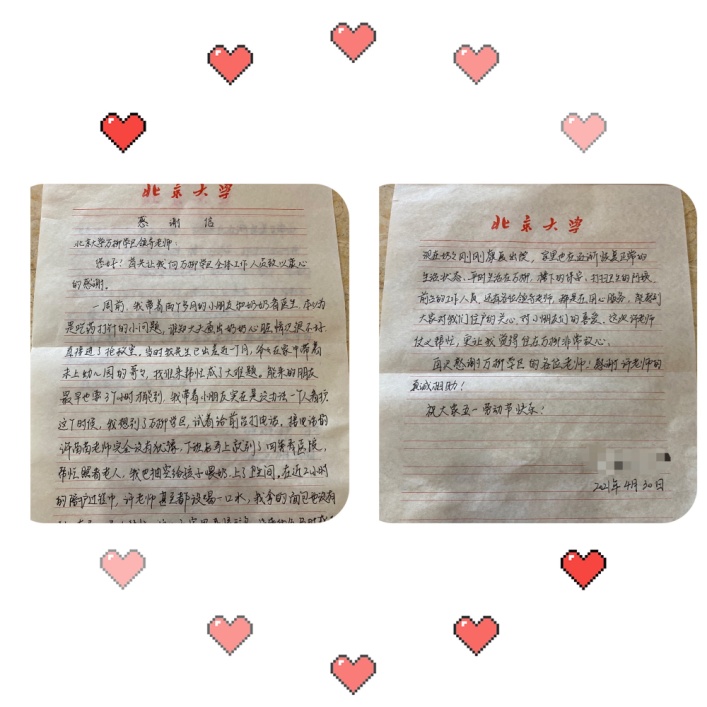 北京大学
感谢信
北京大学万柳学区领导老师：
您好！首先让我向万柳学区全体工作人员致以衷心
的感谢。
一周前，我带着两个多月的小朋友和奶奶看医生，本以为
是吃药打针的小问题，谁知大夫查出奶奶心脏情况很不好，
直接进了抢救室。当时我先生已出差近一个月，爷爷在家中带着
未上幼儿园的哥哥，找谁来帮忙成了大难题。能来的朋友
最早也需3个小时才能到，我带着小朋友实在是没办法一个人看护。
这个时候，我想到了万柳学区，试着给前台打电话。接电话的
许苗苗老师完全没有犹豫，下班后马上就到了四季青医院，
帮忙照看老人，我也抽空给孩子喂奶、上了卫生间。在近2小时
的陪护过程中，许老师甚至都没喝一口水，我拿的面包也没有
北京大学
现在奶奶刚刚康复出院，家里也在逐渐恢复正常的
生活状态。平时生活在万柳，楼下的保安、打扫卫生的阿姨
前台的工作人员，还有各位领导老师，都是在用心服务，能感到
大家对我们住户的关心、对小朋友们的喜爱。这次许老师
仗义帮忙，更让我觉得住在万柳非常安心。
再次感谢万柳学区的各位老师！感谢许老师的
真诚相助！
祝大家五一劳动节快乐！
2021年4月30日